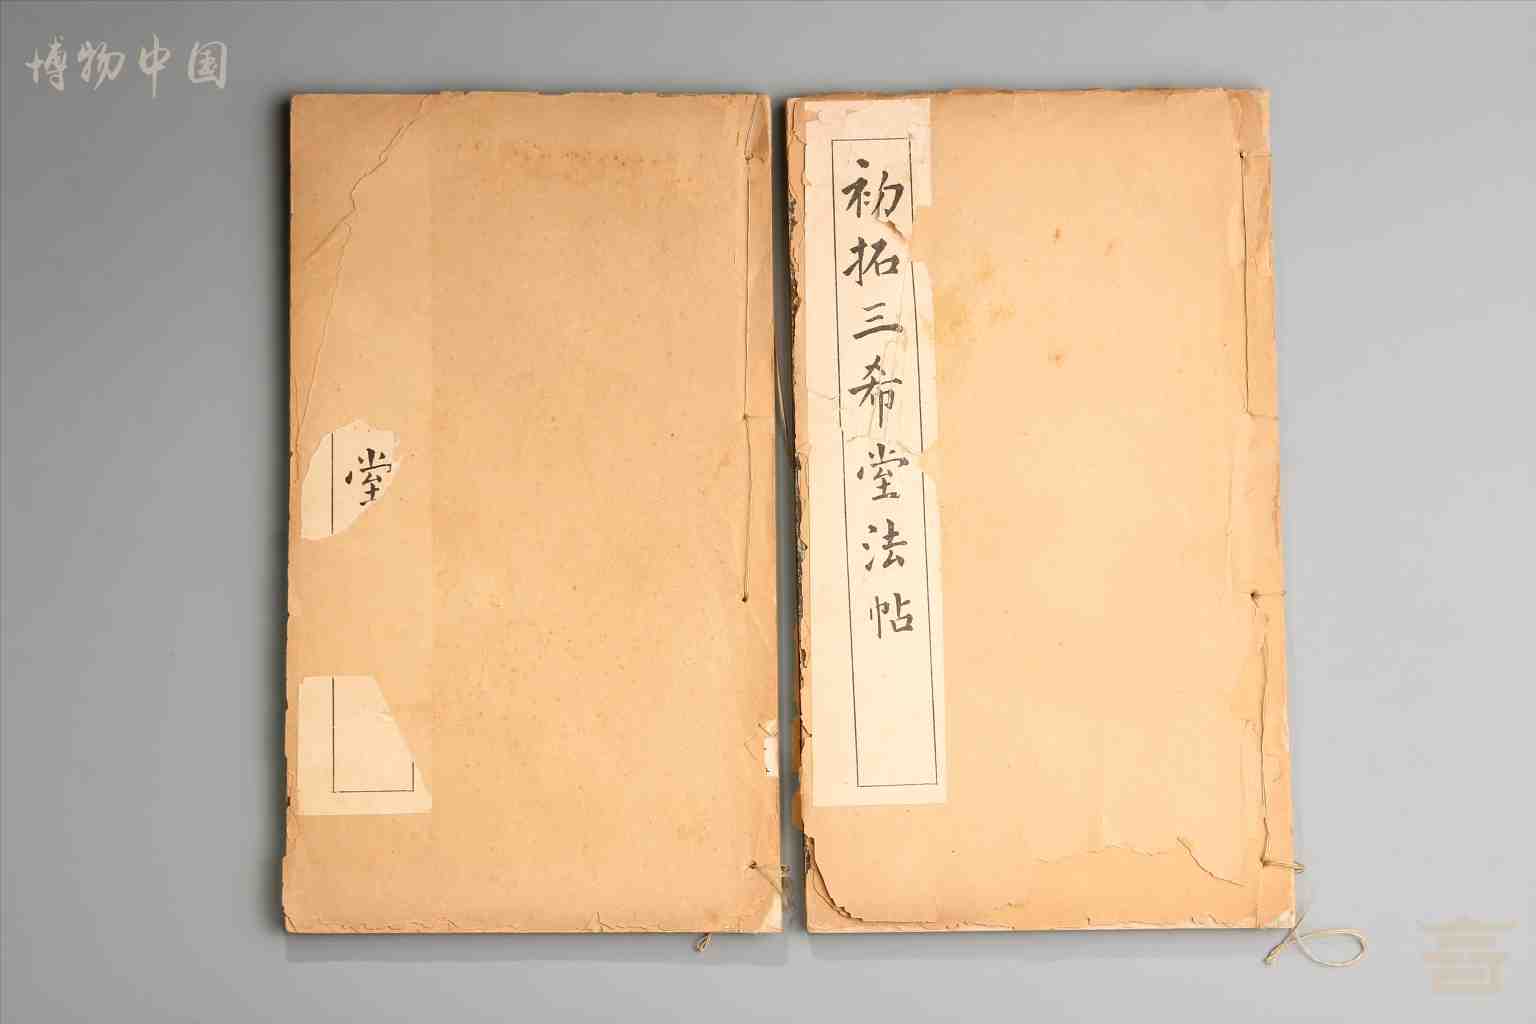 博物中国
初拓三希堂法帖
堂